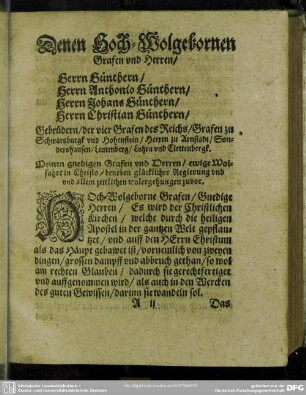 Denen Hoch-Wolgebornen
Grafen vnd Herren/
Herrn Günthern/
Herrn Anthonio Günthern/
Herrn Johans Günthern/
Herrn Christian Günthern/
Gebrüdern/ der vier Grafen des Reichs/ Grafen zu
Schwartzburgk vnd Hohenstein/ Herren zu Arnstadt/ Son-
dershausen/ Leutenberg/ Lohra vnd Clettenbergk.
Meinen gnedigen Grafen vnd Herren/ ewige Wol-
fahrt in Christo/ beneben glücklicher Regierung vnd
vnd allem zeitlichen wolergehungen zuvor.
HOch-Wolgeborne Grafen/ Gnedige
Herren/ Es wird der Christlichen
Kirchen/ welche durch die heiligen
Apostel in der gantzen Welt gepflan-
tzet/ vnd auff den HErrn Christum
als das Häupt gebawet ist/ vornemlich von zweyen
dingen/ grossen dampff vnd abbruch gethan/ so wol
am rechten Glauben/ dadurch sie gerechtfertiget
vnd auffgenommen wird/ als auch in den Wercken
des guten Gewissen/ darinn sie wandeln sol.
A ij Das